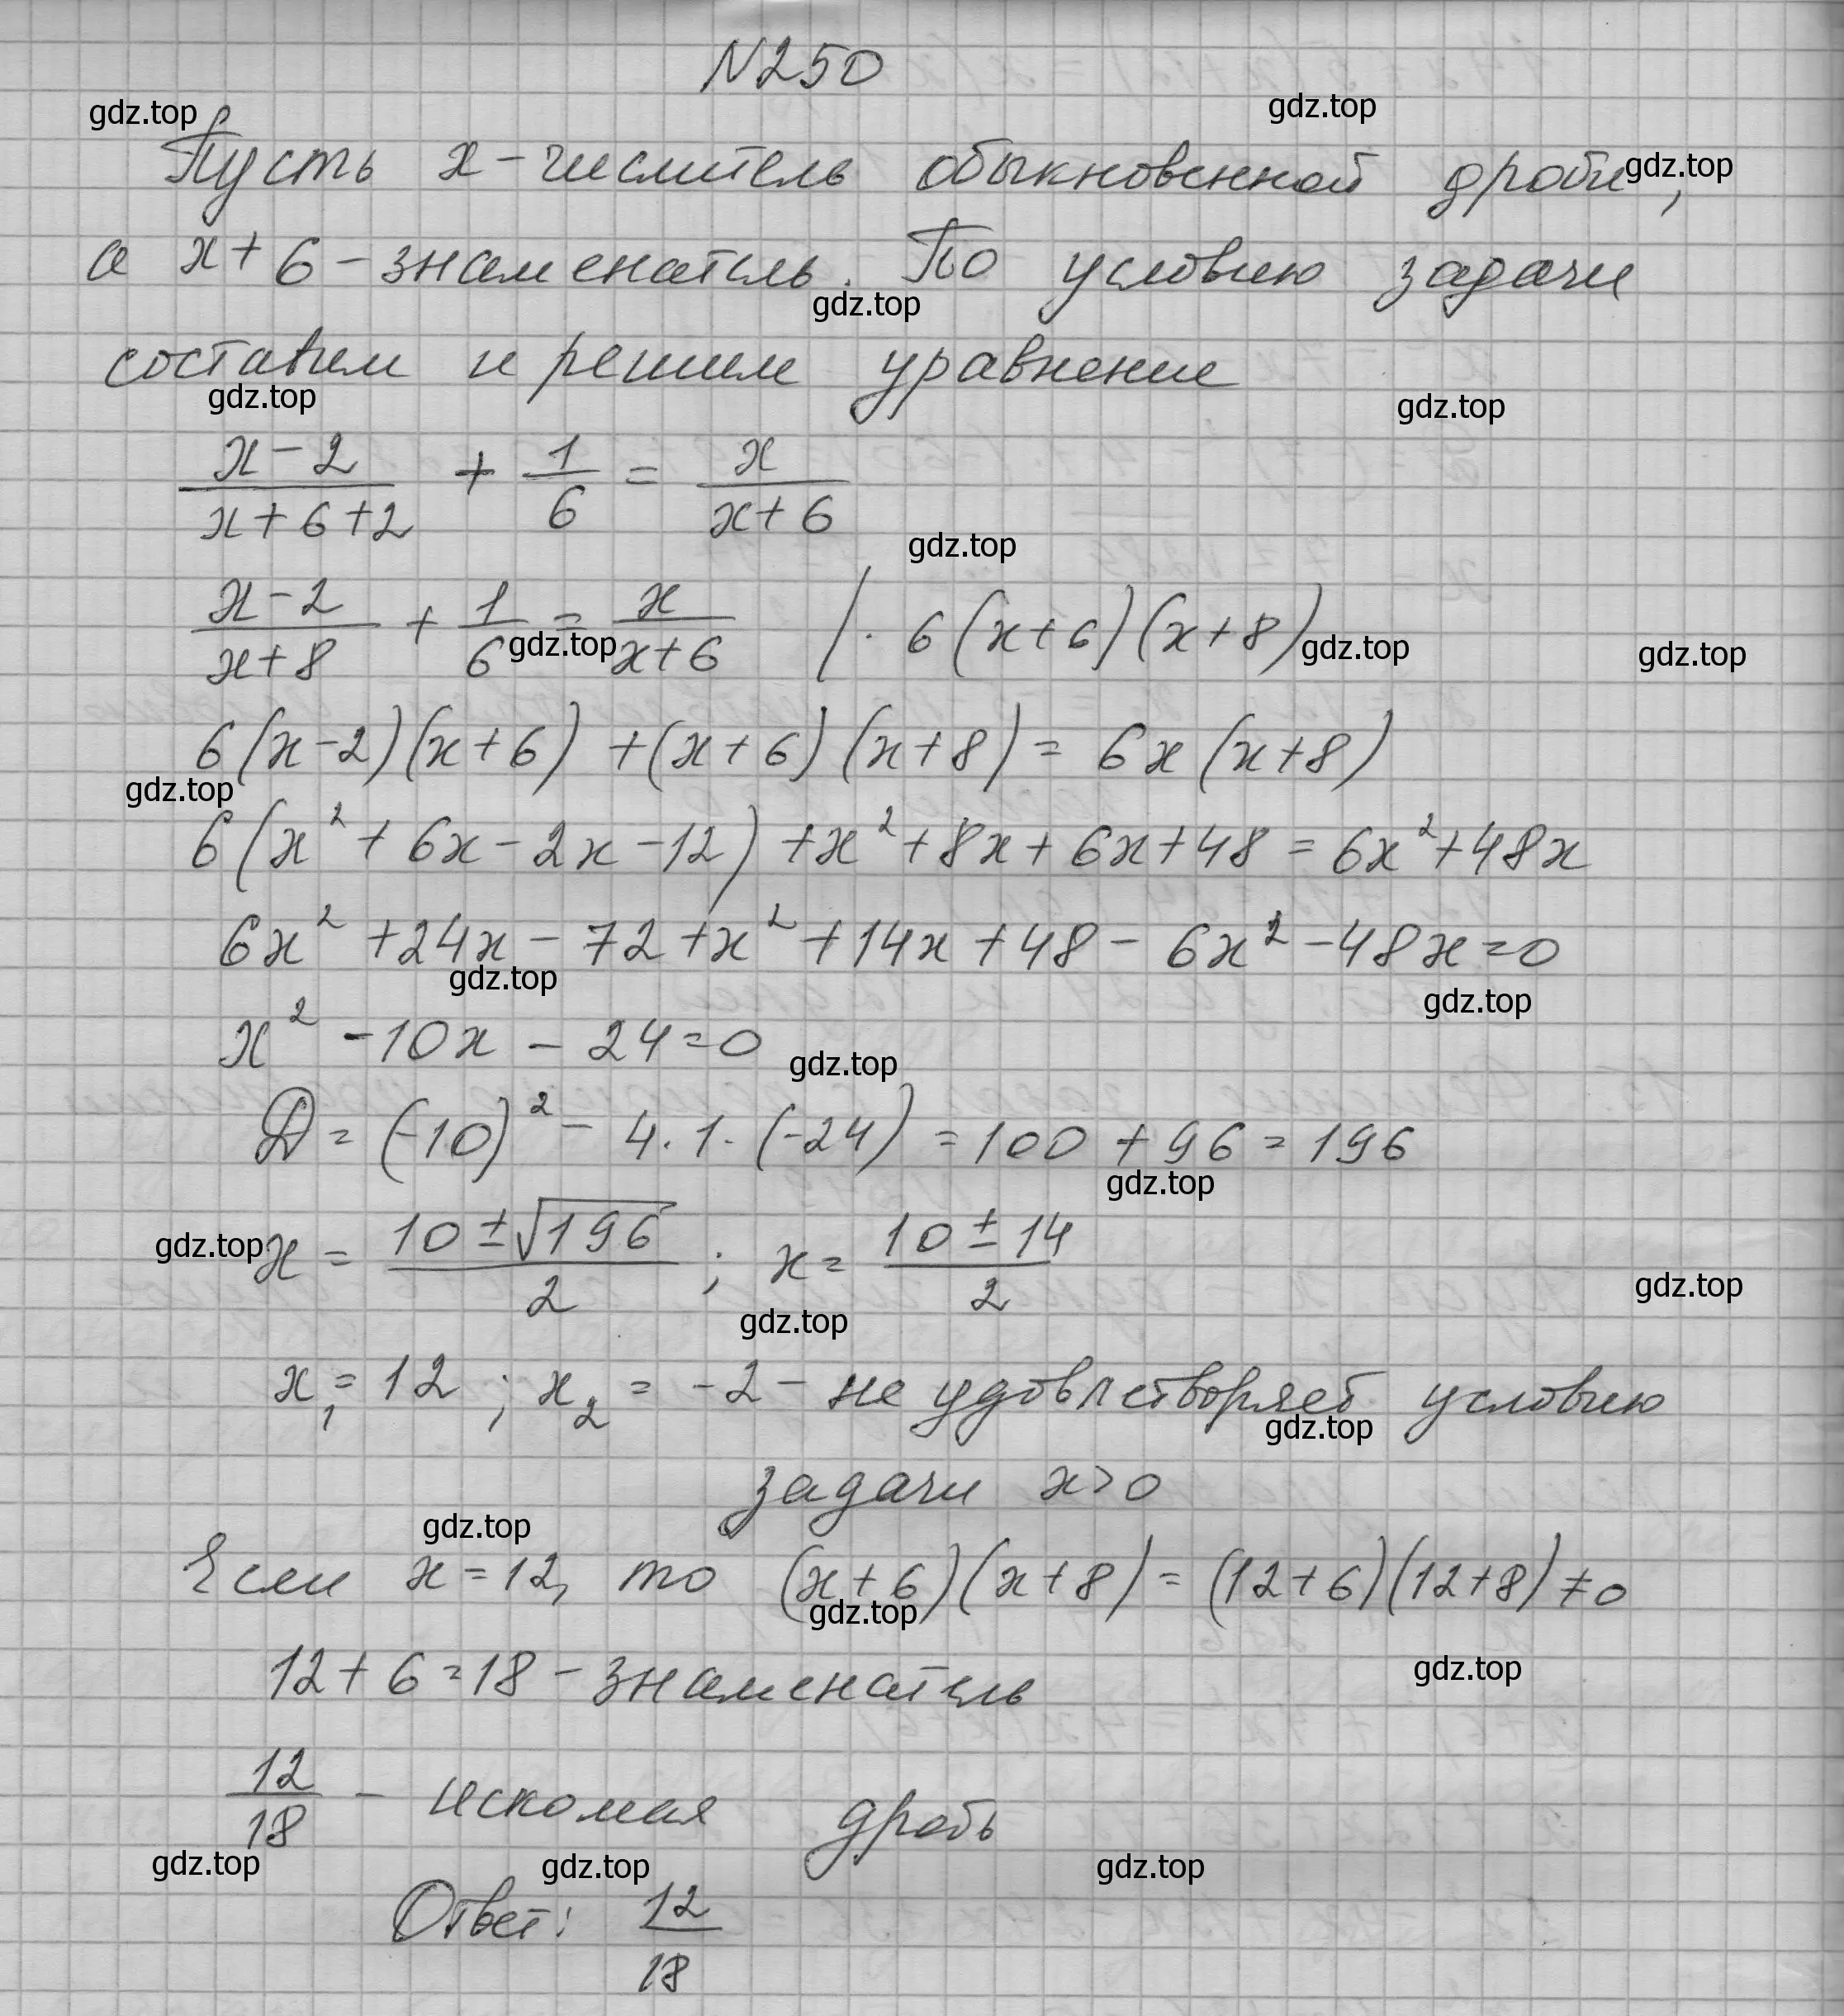 N250
gdz.top gdz.top
Пусть x - числитель обыкновенной дроби, gdz.top
а x + 6 - знаменатель. По условию задачи
gdz.top
составим и решим уравнение
gdz.top gdz.top
(x - 2)/(x + 6 + 2) + 1/6 = x/(x + 6)
gdz.top
(x - 2)/(x + 8) + 1/6 = x/(x + 6) | · 6(x + 6)(x + 8)
gdz.top gdz.top gdz.top
6(x - 2)(x + 6) + (x + 6)(x + 8) = 6x(x + 8)
gdz.top
6(x² + 6x - 2x - 12) + x² + 8x + 6x + 48 = 6x² + 48x
6x² + 24x - 72 + x² + 14x + 48 - 6x² - 48x = 0
gdz.top gdz.top
x² - 10x - 24 = 0
gdz.top
D = (-10)² - 4 · 1 · (-24) = 100 + 96 = 196
gdz.top
gdz.top x = (10 ± √196)/2 ; x = (10 ± 14)/2
gdz.top gdz.top
x₁ = 12 ; x₂ = -2 - не удовлетворяет условию
gdz.top
задачи x > 0
gdz.top
Если x = 12, то (x + 6)(x + 8) = (12 + 6)(12 + 8) ≠ 0
gdz.top
12 + 6 = 18 - знаменатель
gdz.top
12/18 - искомая дробь
gdz.top gdz.top gdz.top
Ответ: 12/18